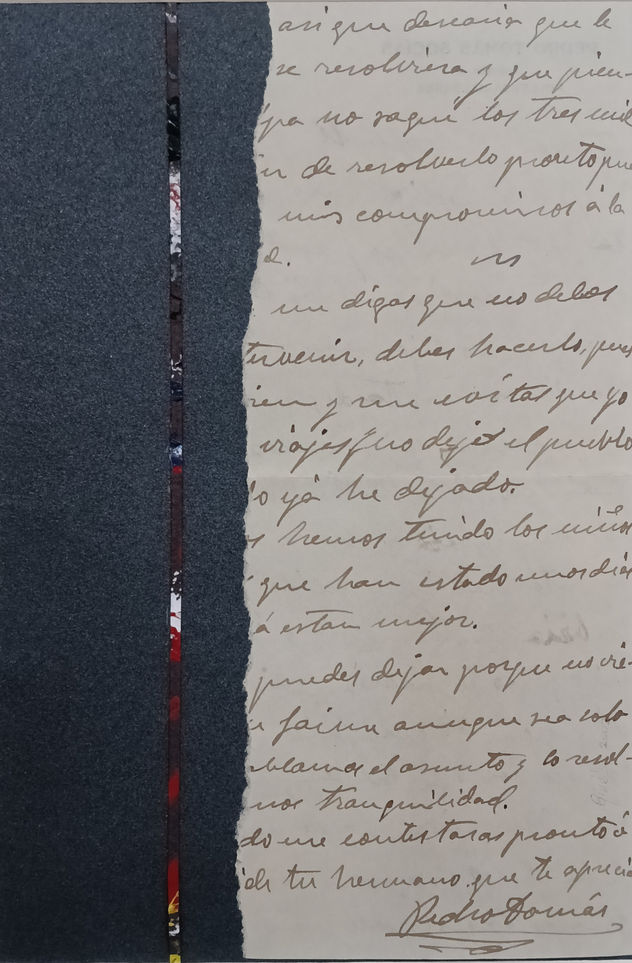 así que desearía que le
se resolviera y que pien-
pa no saque los tres mil
de resolverlo pronto pue
mis compromisos á la
d.
me digas que no debes
tervenir, debes hacerlo, pues
bien y me evitas que yo
viajes y no deje el pueblo
lo yá he dejado.
s hemos tenido los niños
que han estado unos dias
á estan mejor.
puedes dejar porque no vie-
Jaime aunque sea solo
ablamos el asunto y lo resol-
mos tranquilidad.
do me contestaras pronto ó
de tu hermano que te aprecia
Pedro Tomás